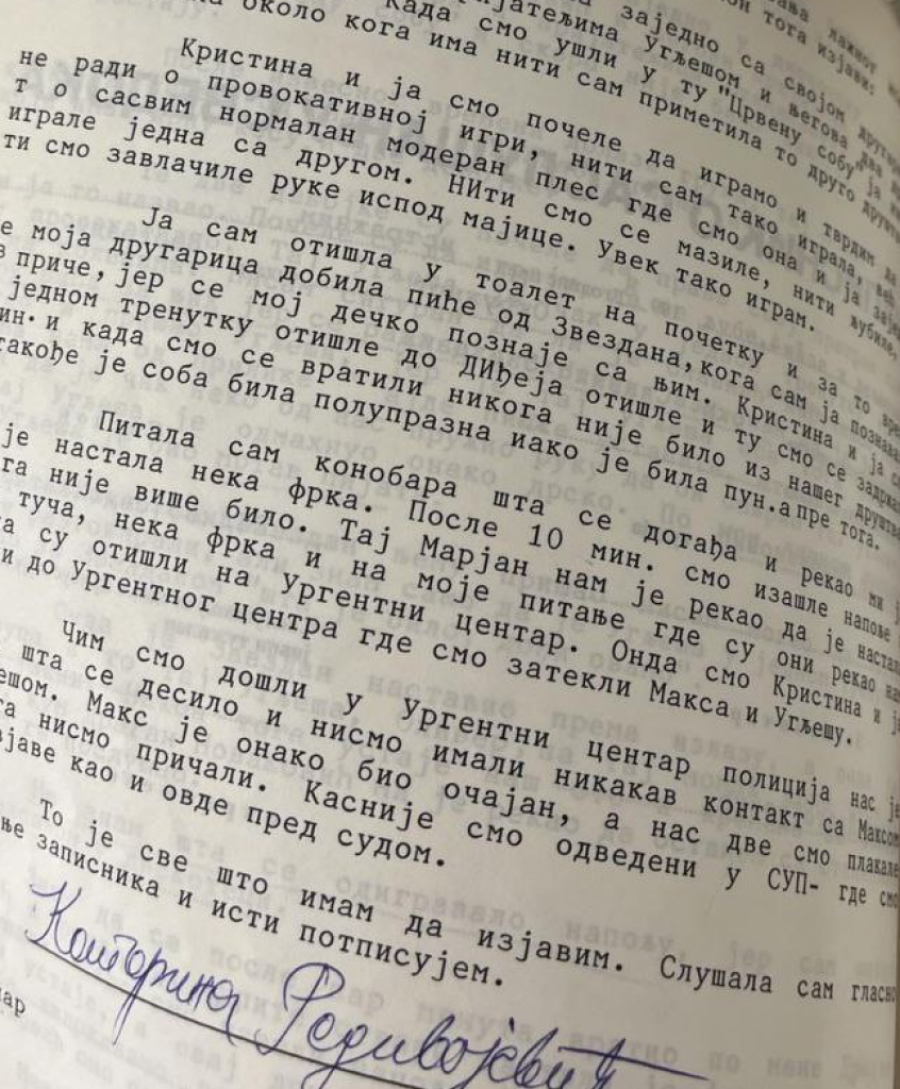 заједно са својом
пријатељима Угљешом и његова два
Када смо ушли у ту "Црвену собу" ја
около кога има нити сам приметила то друго
Кристина и ја смо почеле да играмо и тврдим да
не ради о провокативној игри, нити сам тако играла, већ
т о сасвим нормалан модеран плес где смо она и ја
играле једна са другом. НИти смо се мазиле, нити љубиле,
ти смо завлачиле руке испод мајице. Увек тако играм.
Ја сам отишла у тоалет на почетку и за то
е моја другарица добила пиће од Звездана,кога сам ја
з приче,јер се мој дечко познаје са њим. Кристина и ја
једном тренутку отишле до ДИђеја отишле и ту смо се
ин. и када смо се вратили никога није било из нашег друштва
такође је соба била полупразна иако је била пун.а пре тога.
Питала сам конобара шта се догађа и рекао ми
је настала нека фрка. После 10 мин. смо изашле напоље
га није више било. Тај Марјан нам је рекао да је
туча, нека фрка и на моје питање где су они рекао
а су отишли на Ургентни центар. Онда смо Кристина и
и до Ургентног центра где смо затекли Макса и Угљешу.
Чим смо дошли у Ургентни центар полиција нас је
шта се десило и нисмо имали никакав контакт са Максом
ешом. Макс је онако био очајан, а нас две смо плакале
га нисмо причали. Касније смо одведени у СУП- где смо
зјаве као и овде пред судом.
То је све што имам да изјавим. Слушала сам гласно
ње записника и исти потписујем.
Катарина Радивојевић
ар